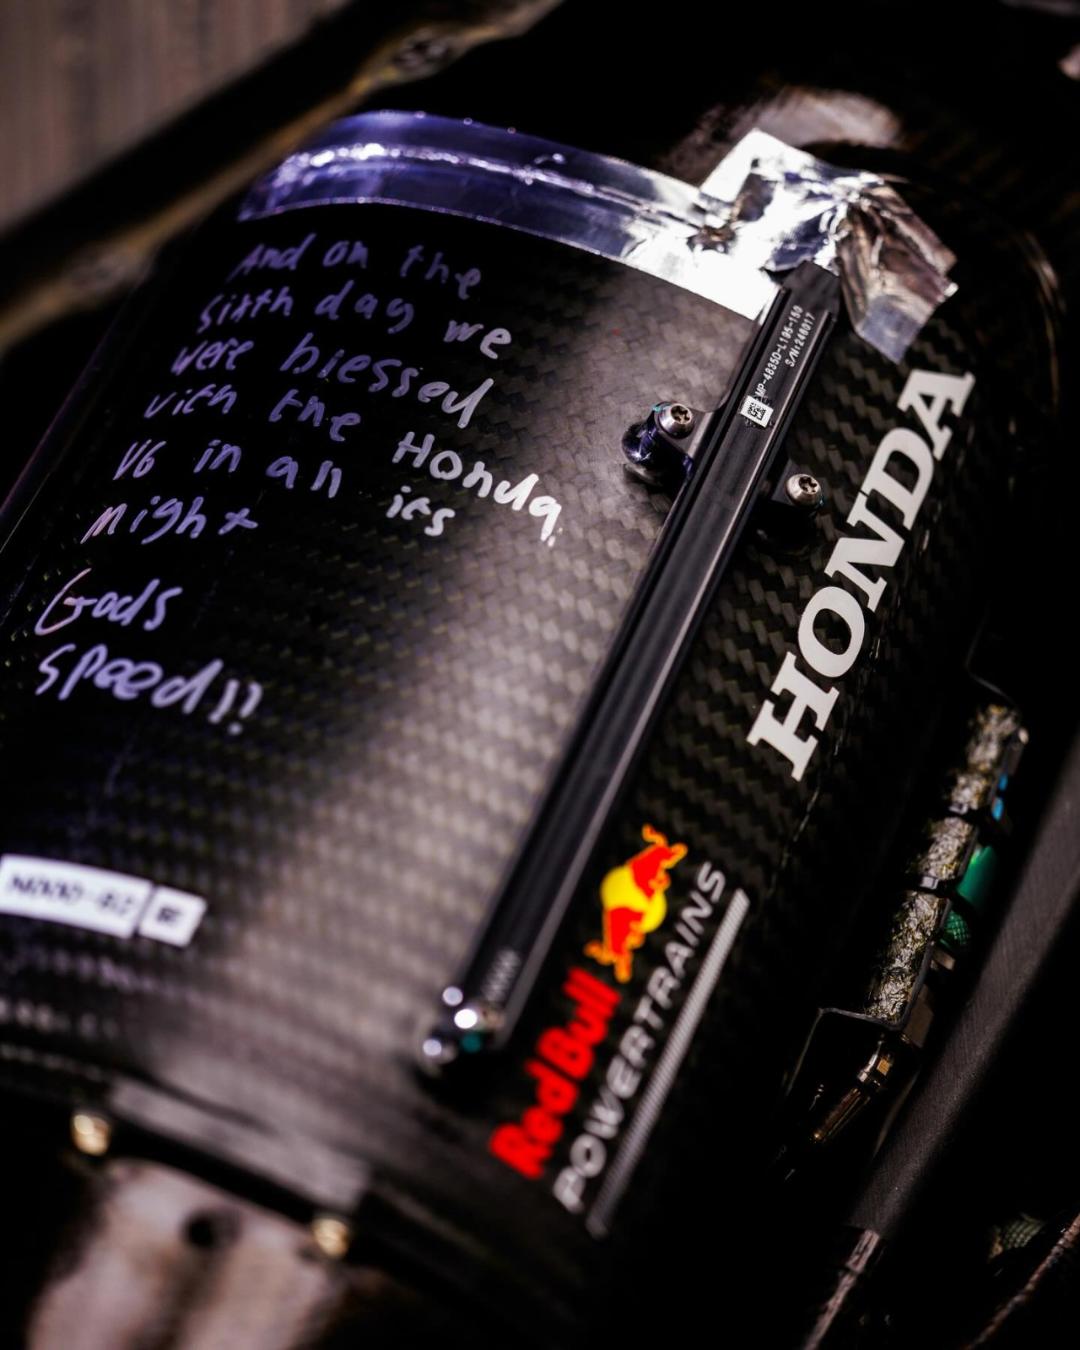 And on the
sixth day we
were blessed
with the Honda.
V6 in all its
might
Gods
speed!!
MP-4835D-L195-150
S/N:248017
HONDA
Red Bull
POWERTRAINS